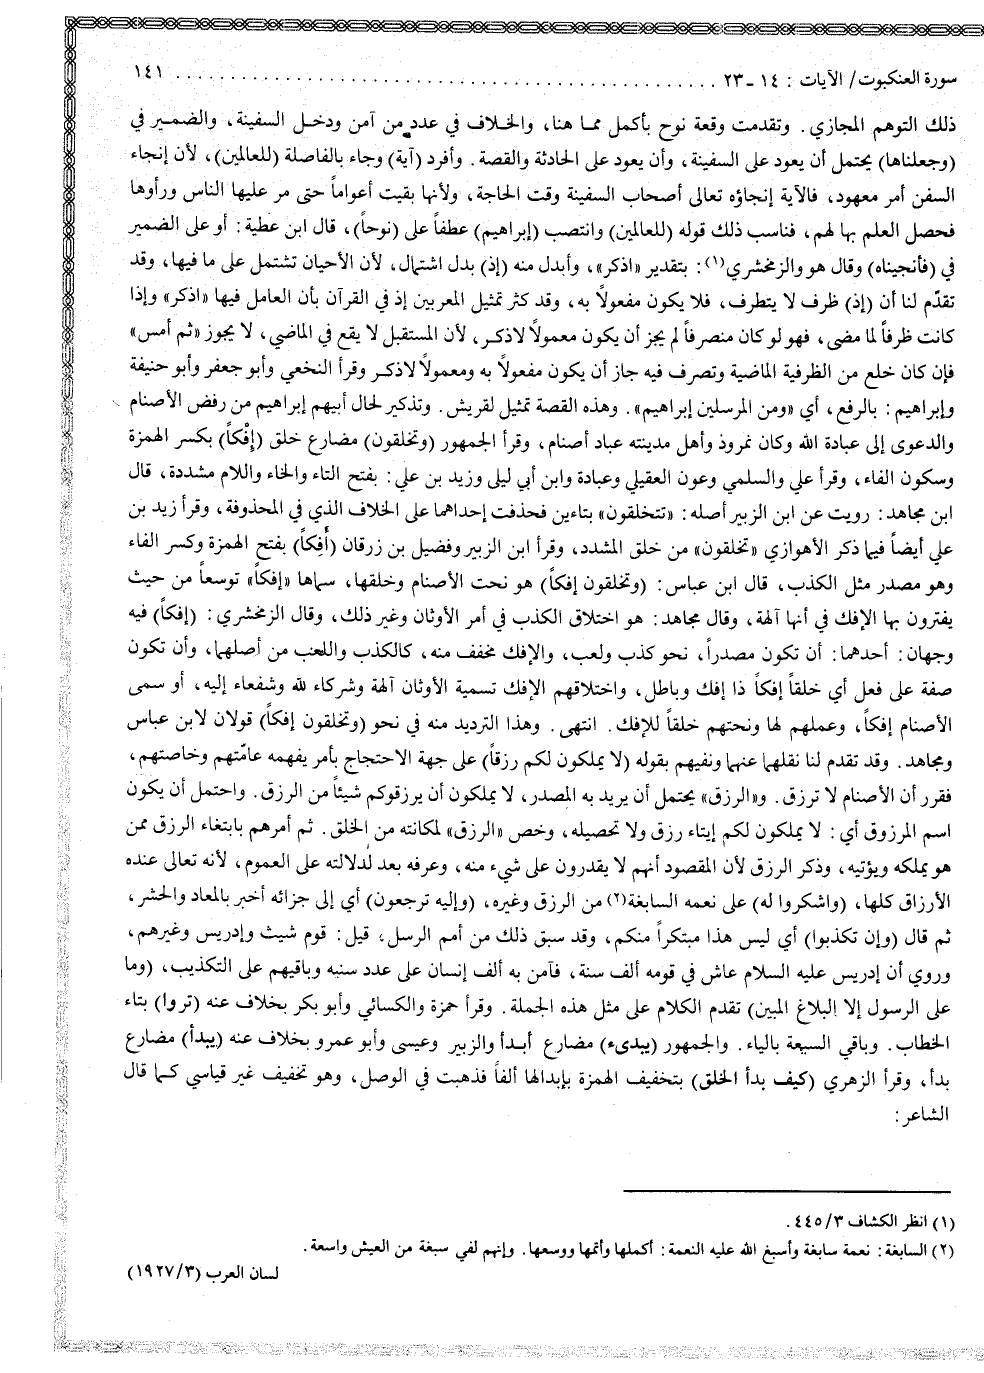 سورة العنكبوت/ الآيات : ١٤ ـ ٢٣ ........................................ ١٤١
ذلك التوهم المجازي . وتقدمت وقعة نوح بأكمل مما هنا، والخلاف في عدد من آمن ودخل السفينة، والضمير في
(وجعلناها) يحتمل أن يعود على السفينة، وأن يعود على الحادثة والقصة . وأفرد (آية) وجاء بالفاصلة (للعالمين)، لأن إنجاء
السفن أمر معهود، فالآية إنجاؤه تعالى أصحاب السفينة وقت الحاجة، ولأنها بقيت أعواماً حتى مر عليها الناس ورأوها
فحصل العلم بها لهم، فناسب ذلك قوله (للعالمين) وانتصب (إبراهيم) عطفاً على (نوحاً)، قال ابن عطية : أو على الضمير
في (فأنجيناه) وقال هو والزمخشري(١) : بتقدير «اذكر»، وأبدل منه (إذ) بدل اشتمال، لأن الأحيان تشتمل على ما فيها، وقد
تقدّم لنا أن (إذ) ظرف لا يتطرف، فلا يكون مفعولاً به، وقد كثر تمثيل المعربين إذ في القرآن بأن العامل فيها «اذكر» وإذا
كانت ظرفاً لما مضى، فهو لو كان منصرفاً لم يجز أن يكون معمولاً لاذكر، لأن المستقبل لا يقع في الماضي، لا يجوز «ثم أمس»
فإن كان خلع من الظرفية الماضية وتصرف فيه جاز أن يكون مفعولاً به ومعمولاً لاذكر وقرأ النخعي وأبو جعفر وأبو حنيفة
وإبراهيم : بالرفع، أي «ومن المرسلين إبراهيم» . وهذه القصة تمثيل لقريش . وتذكير لحال أبيهم إبراهيم من رفض الأصنام
والدعوى إلى عبادة الله وكان نمروذ وأهل مدينته عباد أصنام، وقرأ الجمهور (وتخلقون) مضارع خلق (إِفْكاً) بكسر الهمزة
وسكون الفاء، وقرأ علي والسلمي وعون العقيلي وعبادة وابن أبي ليلى وزيد بن علي : بفتح التاء والخاء واللام مشددة، قال
ابن مجاهد : رويت عن ابن الزبير أصله : «تتخلقون» بتاءين فحذفت إحداهما على الخلاف الذي في المحذوفة، وقرأ زيد بن
علي أيضاً فيما ذكر الأهوازي «تخلقون» من خلق المشدد، وقرأ ابن الزبير وفضيل بن زرقان (أَفِكاً) بفتح الهمزة وكسر الفاء
وهو مصدر مثل الكذب، قال ابن عباس : (وتخلقون إفكاً) هو نحت الأصنام وخلقها، سماها «إفكاً» توسعاً من حيث
يفترون بها الإفك في أنها آلهة، وقال مجاهد : هو اختلاق الكذب في أمر الأوثان وغير ذلك، وقال الزمخشري : (إفكاً) فيه
وجهان : أحدهما : أن تكون مصدراً، نحو كذب ولعب، والإفك مخفف منه، كالكذب واللعب من أصلهما، وأن تكون
صفة على فعل أي خلقاً إفكاً ذا إفك وباطل، واختلاقهم الإفك تسمية الأوثان آلهة وشركاء لله وشفعاء إليه، أو سمى
الأصنام إفكاً، وعملهم لها ونحتهم خلقاً للإفك . انتهى . وهذا الترديد منه في نحو (وتخلقون إفكاً) قولان لابن عباس
ومجاهد . وقد تقدم لنا نقلهما عنهما ونفيهم بقوله (لا يملكون لكم رزقاً) على جهة الاحتجاج بأمر يفهمه عامّتهم وخاصتهم،
فقرر أن الأصنام لا ترزق . و«الرزق» يحتمل أن يريد به المصدر، لا يملكون أن يرزقوكم شيئاً من الرزق . واحتمل أن يكون
اسم المرزوق أي : لا يملكون لكم إيتاء رزق ولا تحصيله، وخص «الرزق» لمكانته من الخلق . ثم أمرهم بابتغاء الرزق ممن
هو يملكه ويؤتيه، وذكر الرزق لأن المقصود أنهم لا يقدرون على شيء منه، وعرفه بعد لدلالته على العموم، لأنه تعالى عنده
الأرزاق كلها، (واشكروا له) على نعمه السابغة(٢) من الرزق وغيره، (وإليه ترجعون) أي إلى جزائه أخبر بالمعاد والحشر،
ثم قال (وإن تكذبوا) أي ليس هذا مبتكراً منكم، وقد سبق ذلك من أمم الرسل، قيل : قوم شيث وإدريس وغيرهم،
وروي أن إدريس عليه السلام عاش في قومه ألف سنة، فآمن به ألف إنسان على عدد سنيه وباقيهم على التكذيب، (وما
على الرسول إلا البلاغ المبين) تقدم الكلام على مثل هذه الجملة . وقرأ حمزة والكسائي وأبو بكر بخلاف عنه (تروا) بتاء
الخطاب . وباقي السبعة بالياء . والجمهور (يبدىء) مضارع أبدأ والزبير وعيسى وأبو عمرو بخلاف عنه (يبدأ) مضارع
بدأ، وقرأ الزهري (كيف بدأ الخلق) بتخفيف الهمزة بإبدالها ألفاً فذهبت في الوصل، وهو تخفيف غير قياسي كما قال
الشاعر :
(١) انظر الكشاف ٤٤٥/٣ .
(٢) السابغة : نعمة سابغة وأسبغ الله عليه النعمة : أكملها وأتمها ووسعها . وإنهم لفي سبغة من العيش واسعة .
لسان العرب (١٩٢٧/٣)